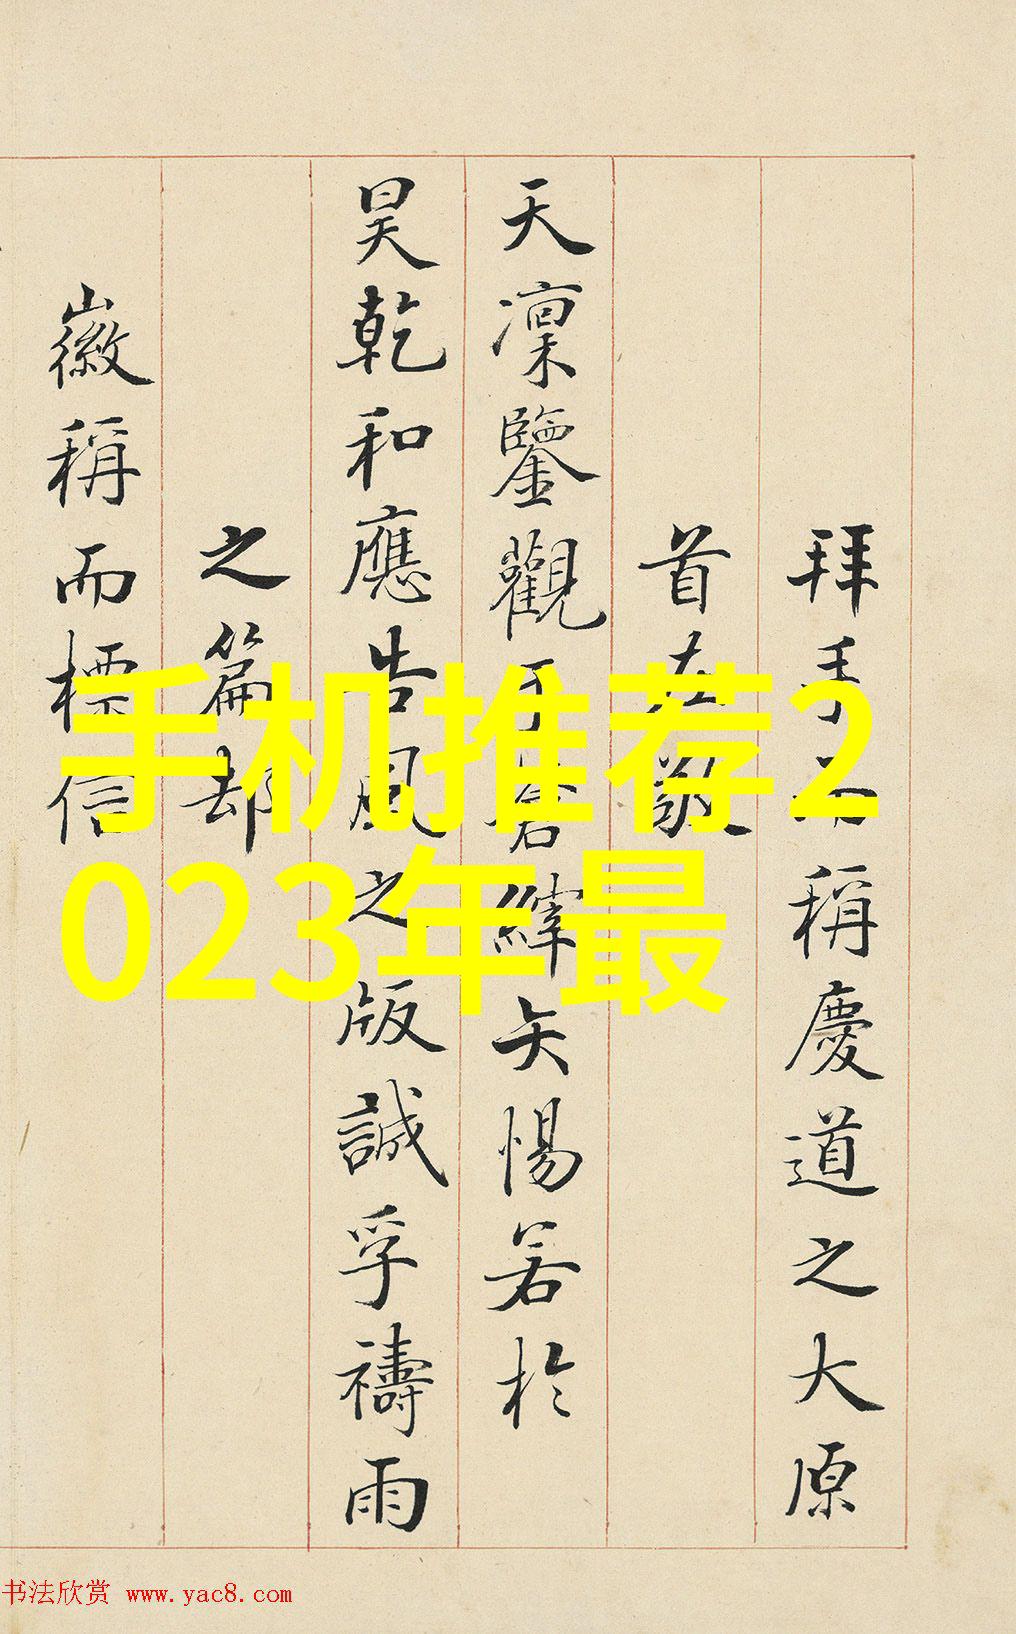 拜手而稱慶道之大原
首在敬
天凜鑒觀于蒼緯矢惕若於
昊乾和應告風之版誠孚禱雨
之篇却
徽稱而標信
手机推荐2
023年最
书法欣赏 www.yac8.com